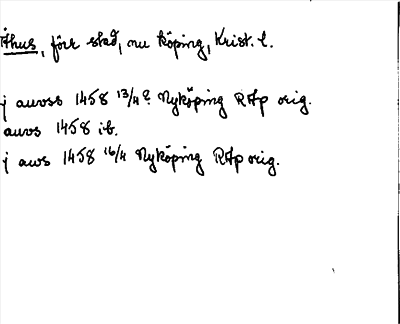 Åhus, förr stad, nu köping, Krist. l.
j auoss 1458 13/4 ? Nyköping RAp orig.
auos 1458 ib.
j aws 1458 16/4 Nyköping RAp orig.